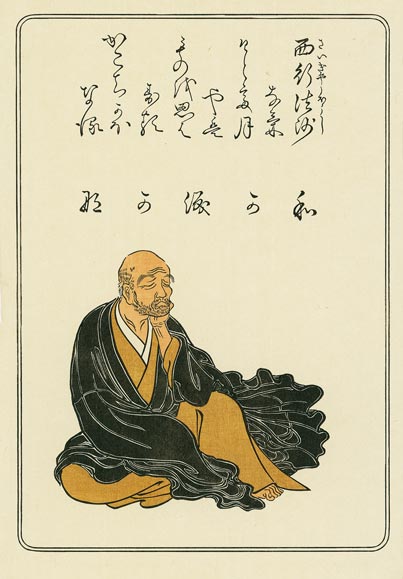 西行法師
さいぎやうほうし
なげ
けとて月
やは
ものを思は
する
かこちかほ
なる
わ
か
涙
か
な